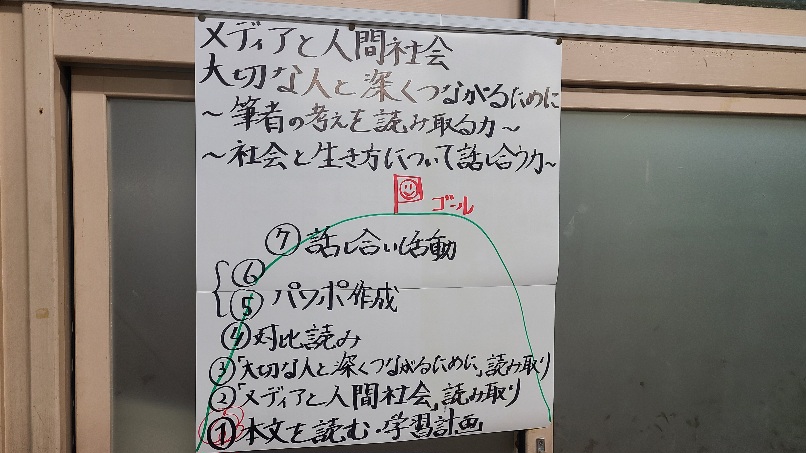 メディアと人間社会
大切な人と深くつながるために
～筆者の考えを読み取る力～
～社会と生き方について話し合う力～
ゴール
⑦ 話し合い活動
⑥
⑤ パワポ作成
④ 対比読み
③「大切な人と深くつながるために」読み取り
②「メディアと人間社会」読み取り
① 本文を読む・学習計画